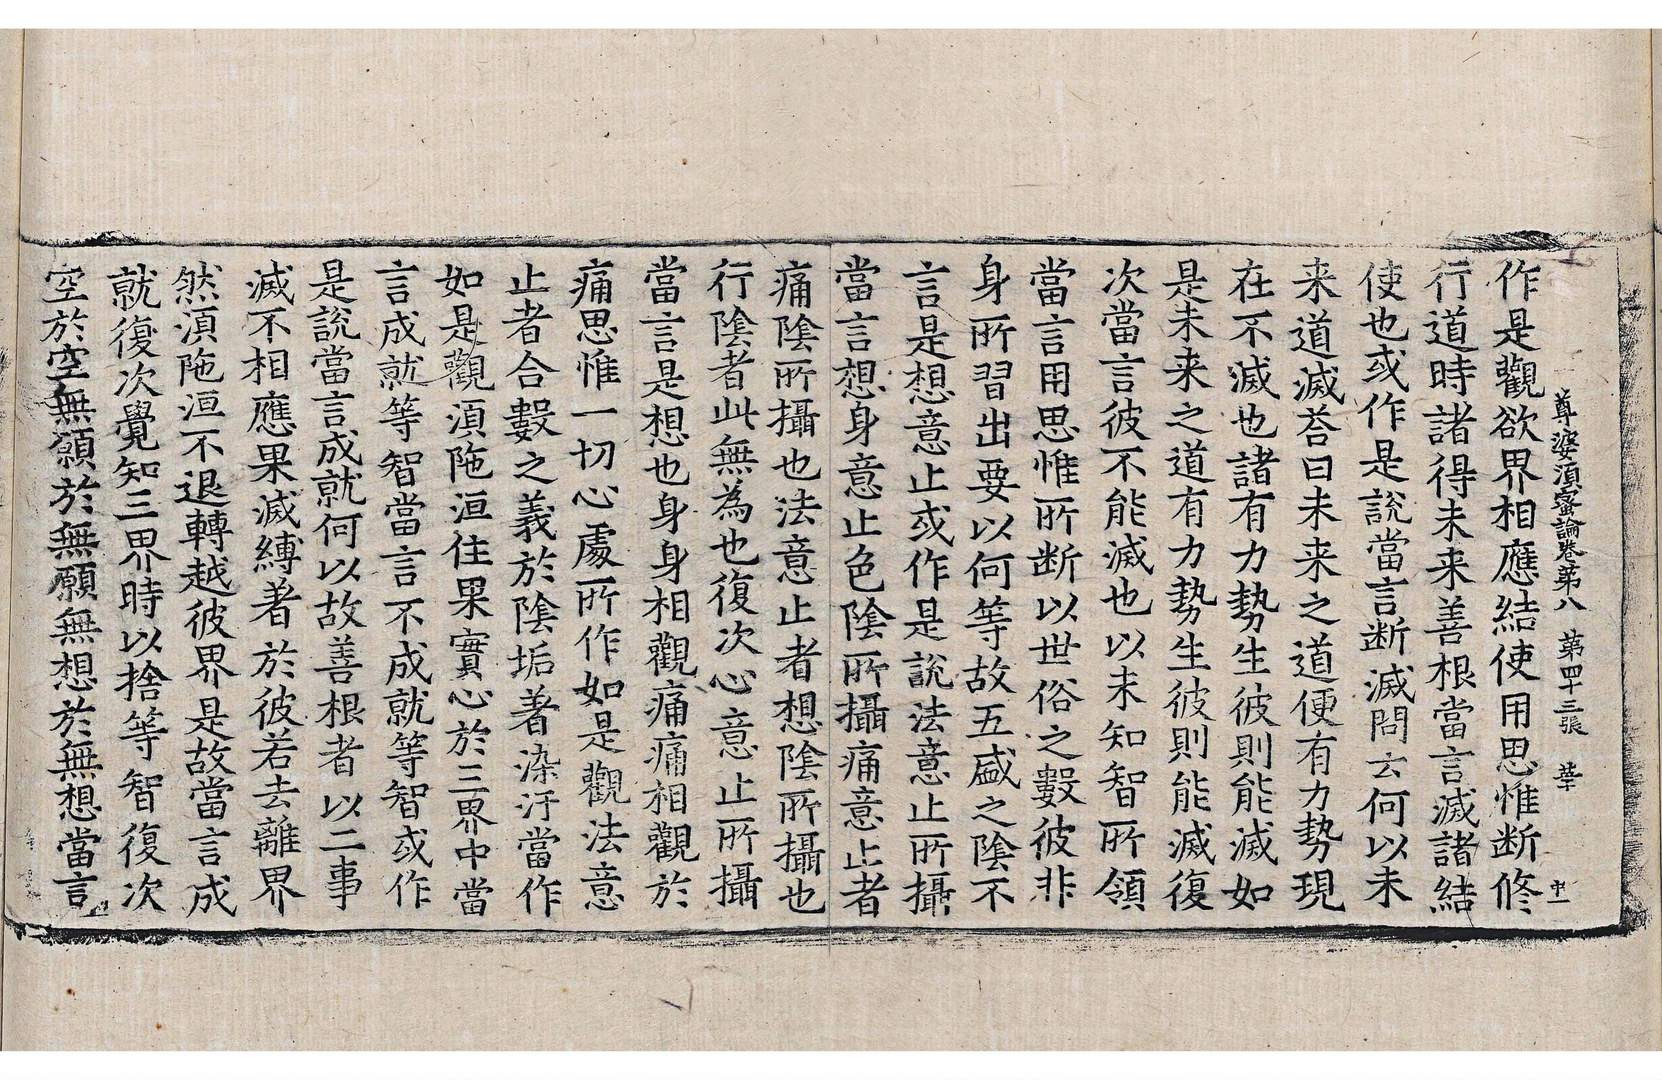 尊婆湏蜜論卷第八 第四十三張 華
作是觀欲界相應結使用思惟断修
行道時諸得未来善根當言滅諸結
使也或作是說當言断滅問云何以未
来道滅荅曰未来之道便有力勢現
在不滅也諸有力勢生彼則能滅如
是未来之道有力勢生彼則能滅復
次當言彼不能滅也以未知智所領
當言用思惟所断以世俗之數彼非
身所習出要以何等故五盛之陰不
言是想意止或作是說法意止所攝
當言想身意止色陰所攝痛意止者
痛陰所攝也法意止者想陰所攝也
行陰者此無為也復次心意止所攝
當言是想也身身相觀痛痛相觀於
痛思惟一切心處所作如是觀法意
止者合數之義於陰垢著染汙當作
如是觀湏陁洹住果實心於三界中當
言成就等智當言不成就等智或作
是說當言成就何以故善根者以二事
滅不相應果滅縛著於彼若去離界
然湏陁洹不退轉越彼界是故當言成
就復次覺知三界時以捨等智復次
空於空無願於無願無想於無想當言